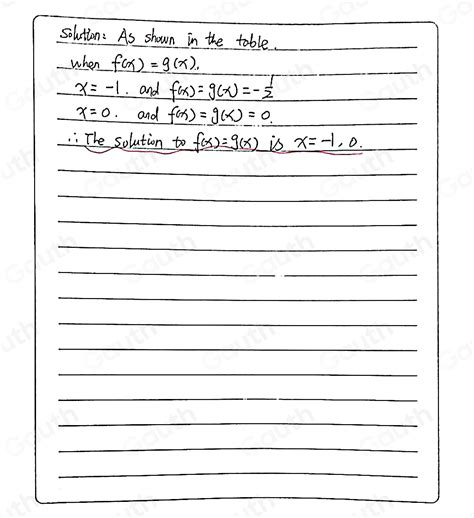 Solution: As shown in the table.
when f(x) = g(x).
x = -1. and f(x) = g(x) = -1/2
x = 0. and f(x) = g(x) = 0.
∴ The solution to f(x) = g(x) is x = -1, 0.
Gauth